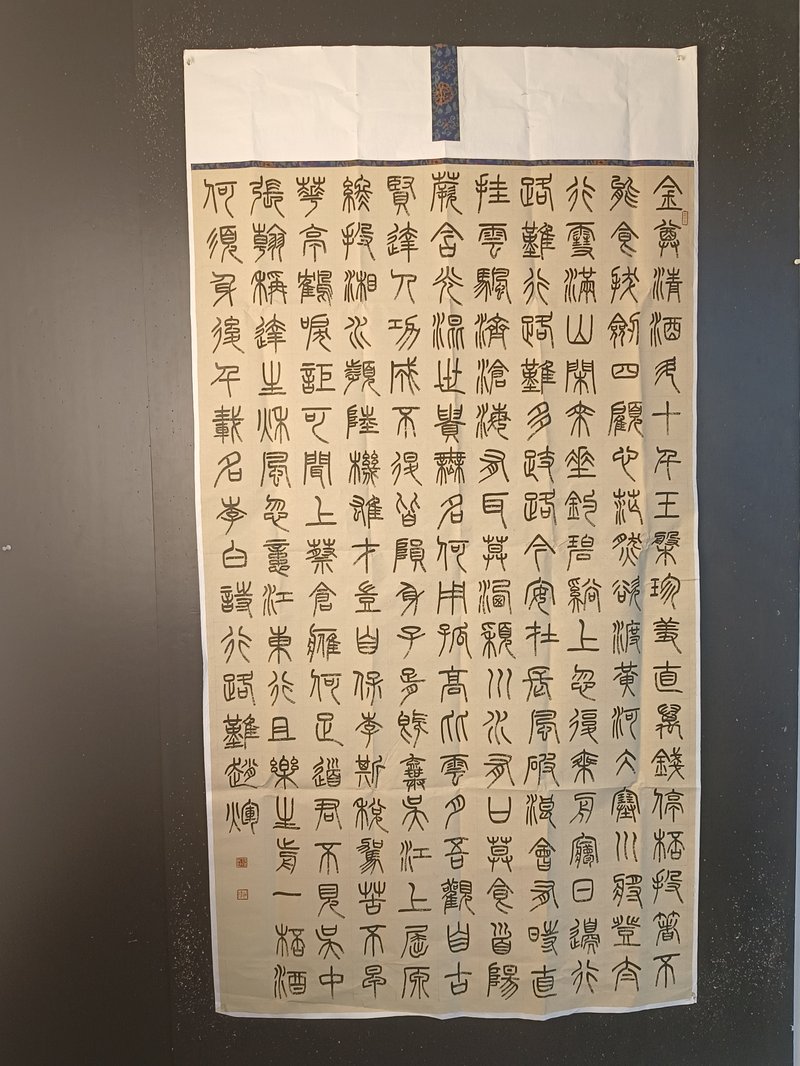 金尊清酒斗十千玉盤珍羞直萬錢停桮投箸不
能食拔劍四顧心茫然欲渡黃河冰塞川將登太
行雪滿山閒來垂釣碧谿上忽復乘舟夢日邊行
路難行路難多歧路今安在長風破浪會有時直
挂雲帆濟滄海有耳莫洗潁川水有口莫食首陽
蕨含光混世貴無名何用孤高比雲月吾觀自古
賢達人功成不退皆殞身子胥既棄吳江上屈原
終投湘水濱陸機雄才豈自保李斯稅駕苦不早
華亭鶴唳詎可聞上蔡蒼鷹何足道君不見吳中
張翰稱達生秋風忽憶江東行且樂生前一桮酒
何須身後千載名李白詩行路難趙煇